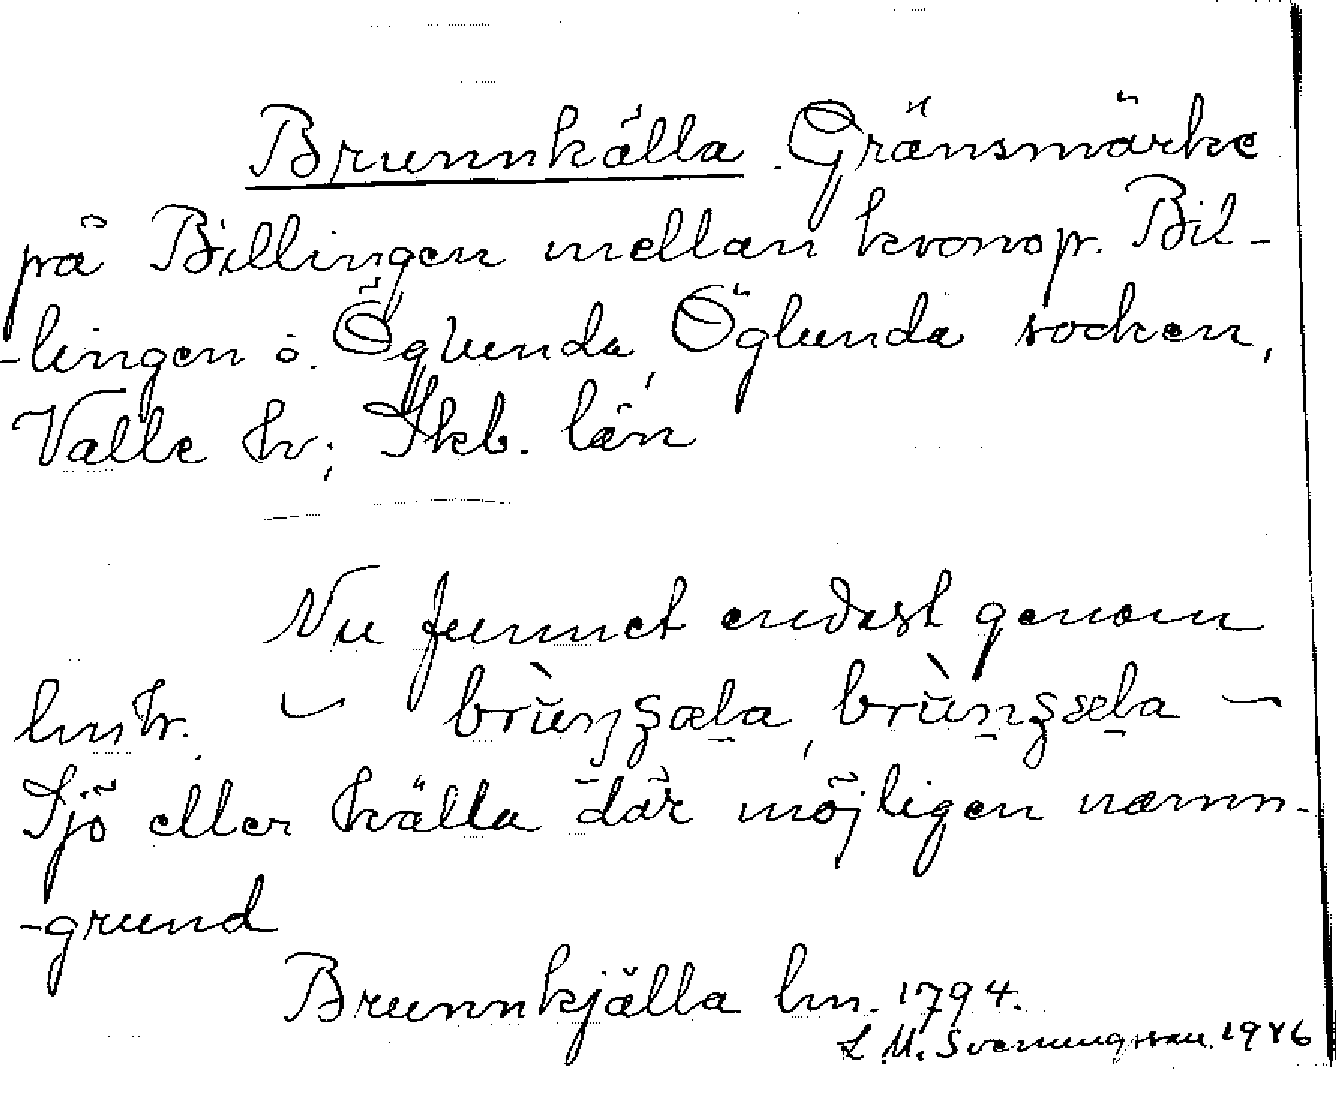 Brunnkälla. Gränsmärke
på Billingen mellan kronop. Bil-
-lingen o. Öglunda, Öglunda socken,
Valle hr; Skb. län
Nu funnet endast genom
lm hr.
Sjö eller källa där möjligen namn-
-grund
Brunnkjälla lm. 1794.
L M. Svenungsson. 1946